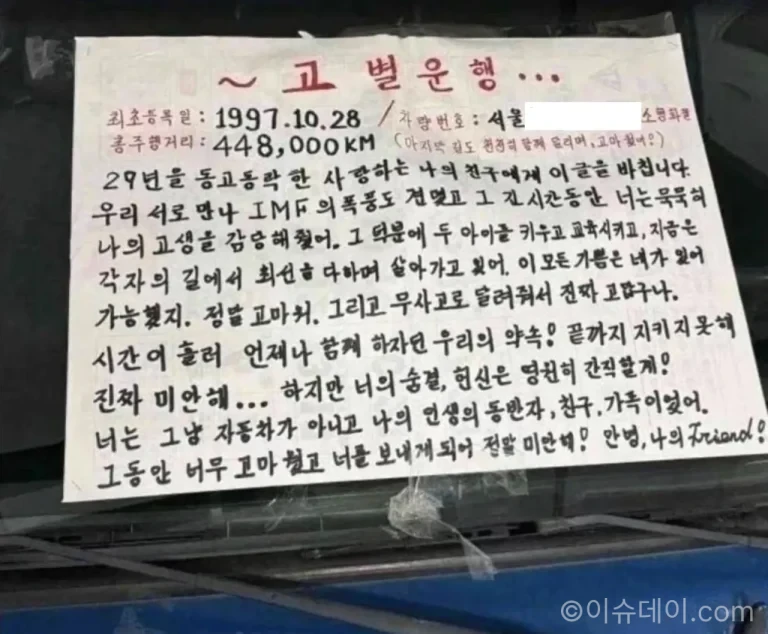 ~ 고별운행...
최초등록일: 1997.10.28 / 차량번호: 서울
총주행거리: 448,000KM (마지막 길도 천천히 함께 달리며, 고마웠어!)
29년을 동고동락한 사랑하는 나의 친구에게 이 글을 바칩니다.
우리 서로 만나 IMF의 폭풍도 견뎠고 그 긴 시간동안 너는 묵묵히
나의 고생을 감당해줬어. 그 덕분에 두 아이를 키우고 교육시키고, 지금은
각자의 길에서 최선을 다하며 살아가고 있어. 이 모든 기쁨은 네가 있어
가능했지. 정말 고마워. 그리고 무사고로 달려줘서 진짜 고맙구나.
시간이 흘러 언제나 함께 하자던 우리의 약속! 끝까지 지키지 못해
진짜 미안해... 하지만 너의 숨결, 헌신은 영원히 간직할게!
너는 그냥 자동차가 아니고 나의 인생의 동반자, 친구, 가족이었어.
그동안 너무 고마웠고 너를 보내게 되어 정말 미안해! 안녕, 나의 Friend!
©이슈데이.com